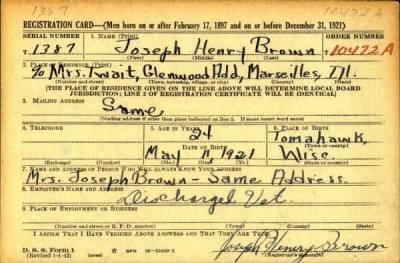 1387 10472A
REGISTRATION CARD—(Men born on or after February 17, 1897 and on or before December 31, 1921)
SERIAL NUMBER 1. NAME (Print) ORDER NUMBER
T 1387 Joseph Henry Brown 10472A
(First) (Middle) (Last)
2. PLACE OF RESIDENCE (Print)
℅ Mrs. Twait, Glenwood Add, Marseilles, Ill.
(Number and street) (Town, township, village, or city) (County) (State)
[THE PLACE OF RESIDENCE GIVEN ON THE LINE ABOVE WILL DETERMINE LOCAL BOARD
JURISDICTION; LINE 2 OF REGISTRATION CERTIFICATE WILL BE IDENTICAL]
3. MAILING ADDRESS
Same
[Mailing address if other than place indicated on line 2. If same insert word same]
4. TELEPHONE 5. AGE IN YEARS 6. PLACE OF BIRTH
24 Tomahawk,
DATE OF BIRTH (Town or county)
May 11 1921 Wisc.
(Exchange) (Number) (Mo.) (Day) (Yr.) (State or country)
7. NAME AND ADDRESS OF PERSON WHO WILL ALWAYS KNOW YOUR ADDRESS
Mrs. Joseph Brown - Same Address.
8. EMPLOYER'S NAME AND ADDRESS
Discharged Vet.
9. PLACE OF EMPLOYMENT OR BUSINESS
(Number and street or R. F. D. number) (Town) (County) (State)
I AFFIRM THAT I HAVE VERIFIED ABOVE ANSWERS AND THAT THEY ARE TRUE.
D. S. S. Form 1
(Revised 1-1-42) Joseph Henry Brown
(Registrant's signature)